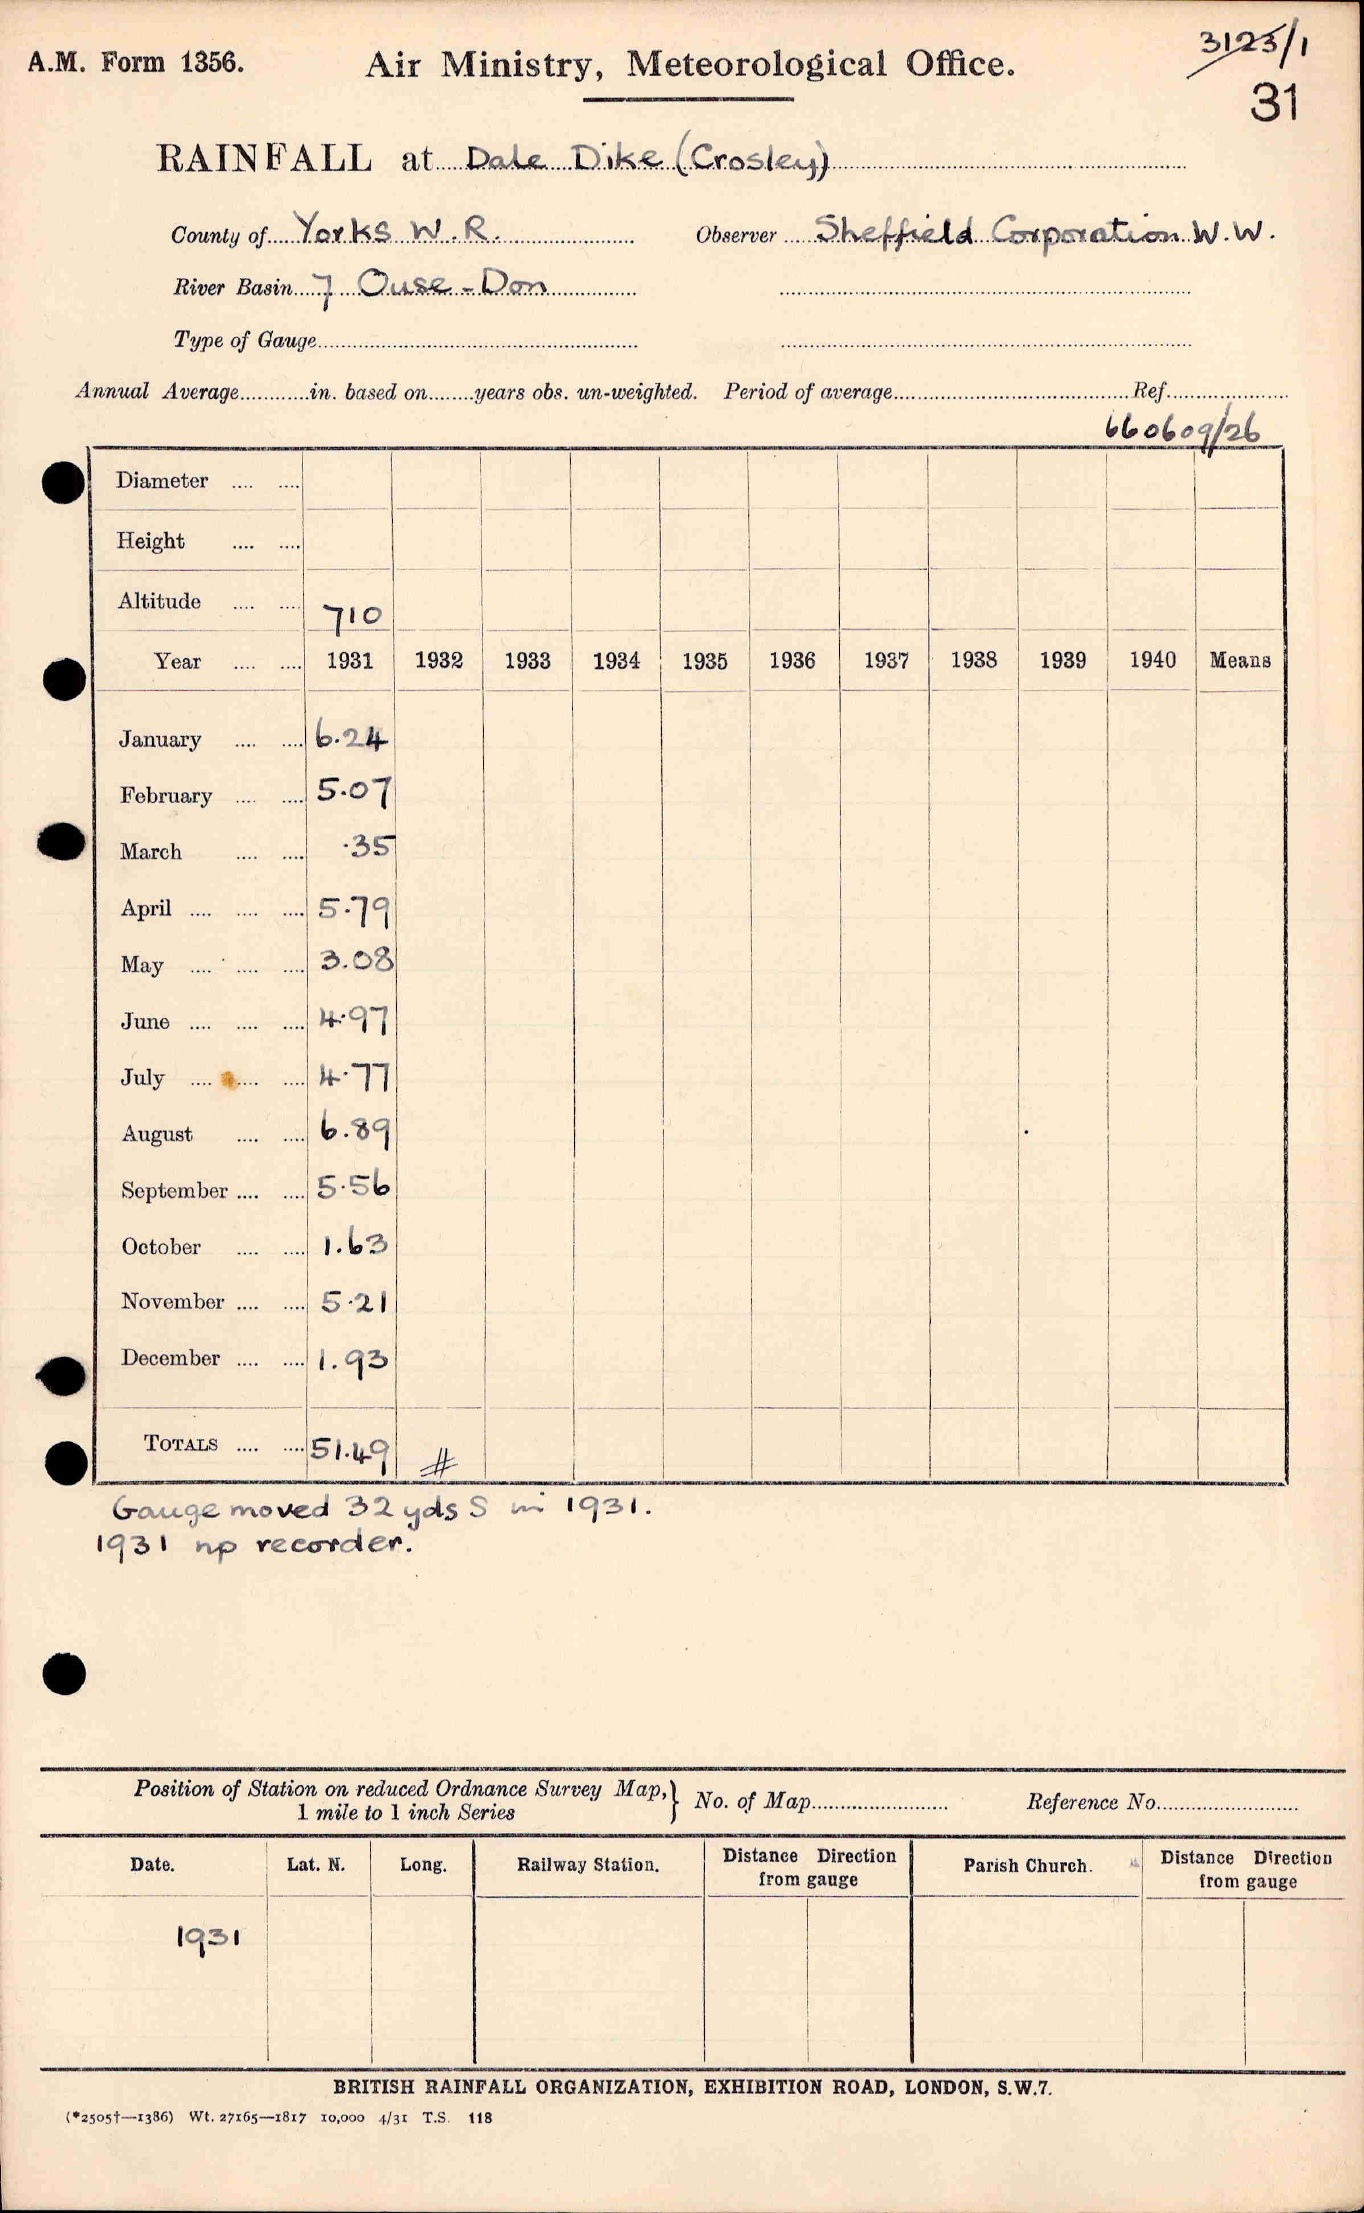 A.M. Form 1356.
Air Ministry, Meteorological Office.
3123/1
31
RAINFALL at Dale Dike (Crosley)
County of Yorks W.R. Observer Sheffield Corporation W.W.
River Basin 7 Ouse-Don
Type of Gauge
Annual Average in. based on years obs. un-weighted. Period of average Ref.
660609/26
Diameter
Height
Altitude 710
Year 1931 1932 1933 1934 1935 1936 1937 1938 1939 1940 Means
January 6.24
February 5.07
March .35
April 5.79
May 3.08
June 4.97
July 4.77
August 6.89
September 5.56
October 1.63
November 5.21
December 1.93
TOTALS 51.49 #
Gauge moved 32 yds S in 1931.
1931 np recorder.
Position of Station on reduced Ordnance Survey Map, } No. of Map Reference No.
1 mile to 1 inch Series
Date. Lat. N. Long. Railway Station. Distance Direction from gauge Parish Church. Distance Direction from gauge
1931
BRITISH RAINFALL ORGANIZATION, EXHIBITION ROAD, LONDON, S.W.7.
(*2505†—1386) Wt. 27165—1817 10,000 4/31 T.S. 118